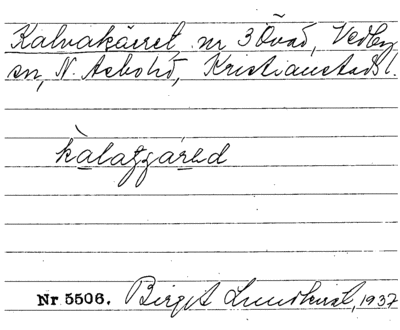 Kalvakärret, nr 3 Övad, Vedby
sn, N. Åsbohd, Kristianstads l.
Nr 5506. Birgit Lundkvist, 1937